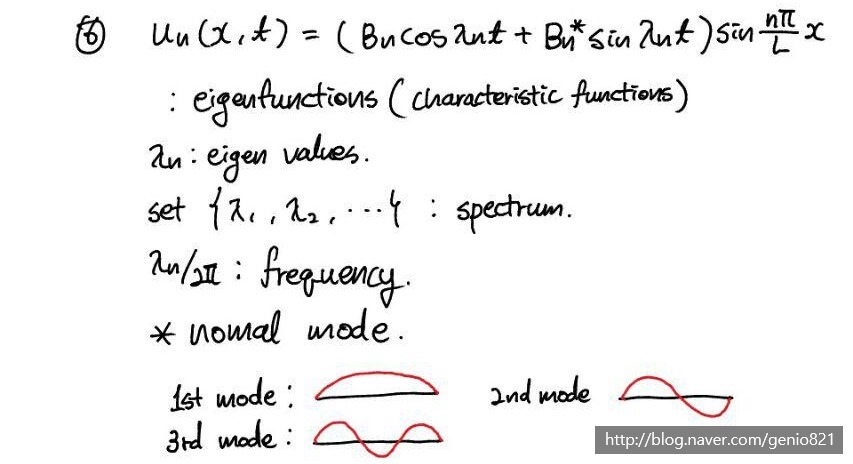 ⑥ Un(x,t) = (Bn cos λnt + Bn* sin λnt) sin nπ/L x
: eigenfunctions (characteristic functions)
λn : eigen values.
set {λ1, λ2, ...} : spectrum.
λn/2π : frequency.
* nomal mode.
1st mode : 2nd mode
3rd mode :
http://blog.naver.com/genio821